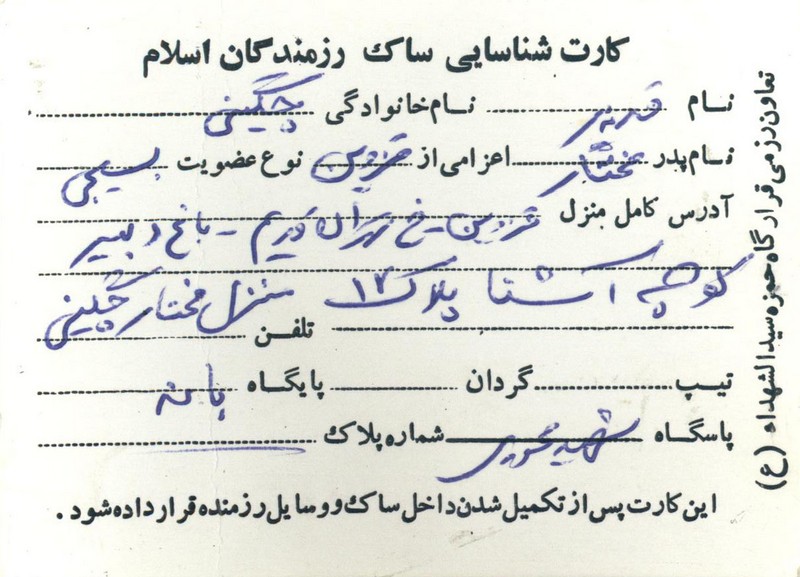 کارت شناسایی ساک رزمندگان اسلام
نام قدرت نام خانوادگی چگینی
نام پدر مختار اعزامی از قزوین نوع عضویت بسیجی
آدرس کامل منزل قزوین خ تهران قدیم - باغ دبیر
کوچه آشنا پلاک ۱۲ منزل مختار چگینی
تلفن
تیپ گردان پایگاه بانه
پاسگاه شهید شماره پلاک
این کارت پس از تکمیل شدن داخل ساک و وسایل رزمنده قرار داده شود.
تعاون رزمی قرارگاه حمزه سیدالشهداء (ع)